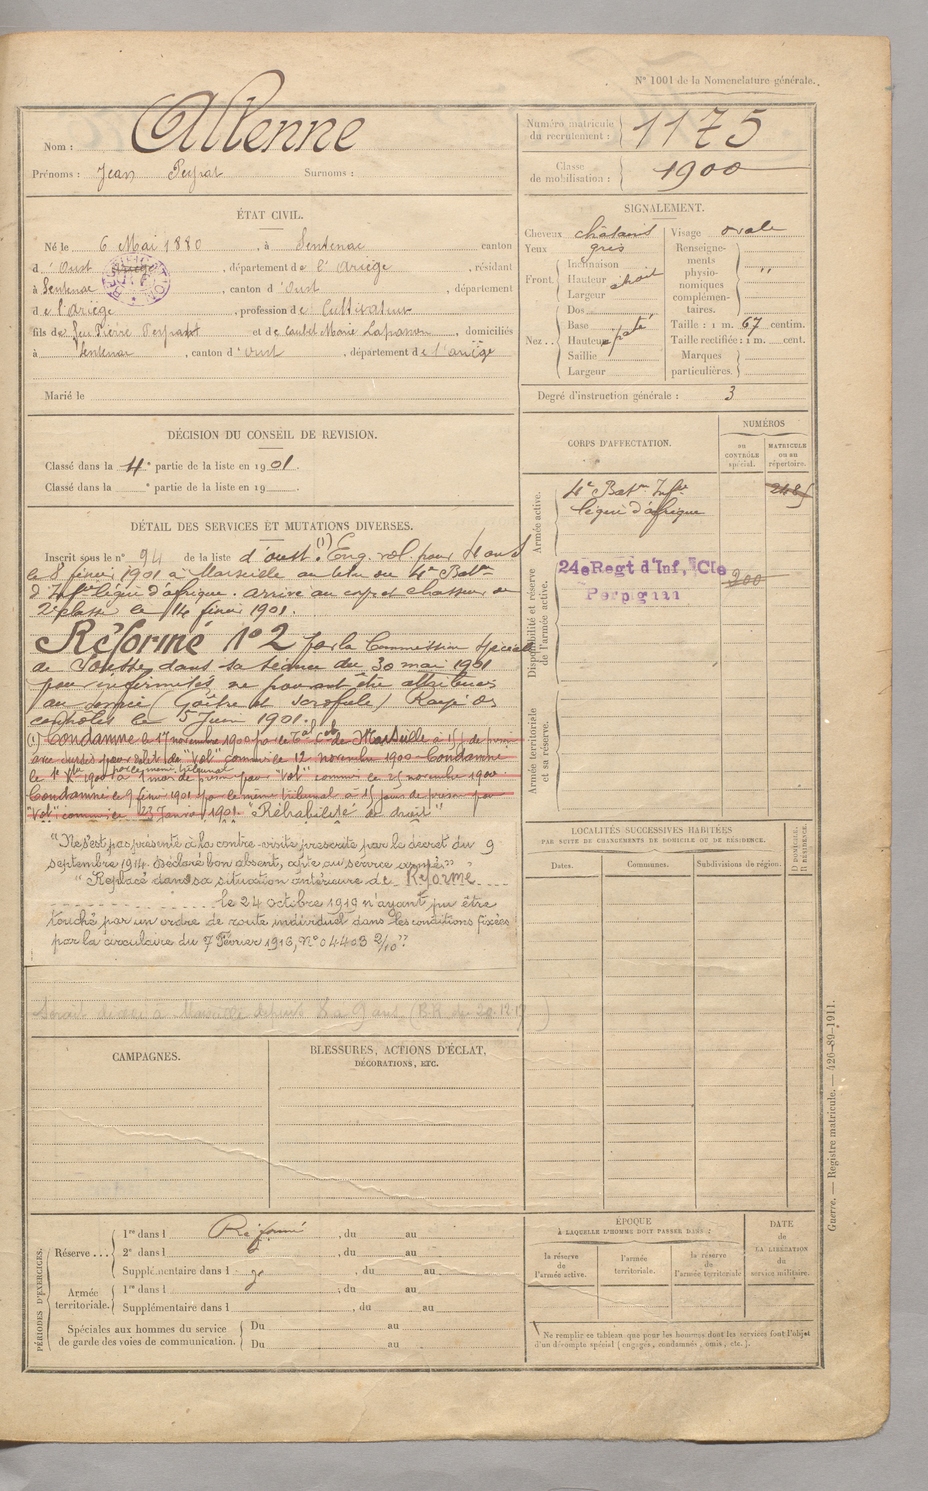 N° 1001 de la Nomenclature générale.
Nom : Allenne
Prénoms : Jean Peyrat Surnoms :
Numéro matricule du recrutement : 1175
Classe de mobilisation : 1900
ÉTAT CIVIL.
Né le 6 Mai 1880, à Sentenac canton
d'Oust, département de l'Ariège, résidant
à Sentenac, canton d'Oust, département
de l'Ariège, profession de Cultivateur
fils de feu Pierre Peyrat et de Marie, domiciliés
à Sentenac, canton d'Oust, département de l'Ariège
Marié le
SIGNALEMENT.
Cheveux châtains
Yeux gris
Front Inclinaison
Hauteur étroit
Largeur
Nez Dos
Base
Hauteur épaté
Saillie
Largeur
Visage ovale
Renseignements physionomiques complémentaires. "
Taille : 1 m. 67 centim.
Taille rectifiée : 1 m. cent.
Marques particulières.
Degré d'instruction générale : 3
DÉCISION DU CONSEIL DE REVISION.
Classé dans la 4e partie de la liste en 1901.
Classé dans la e partie de la liste en 19
CORPS D'AFFECTATION.
NUMÉROS
au contrôle spécial.
MATRICULE ou au répertoire.
Armée active.
4e Batn Infie
légère d'afrique
Disponibilité et réserve de l'armée active.
24e Regt d'Inf, Cie 200
Perpignan
Armée territoriale et sa réserve.
DÉTAIL DES SERVICES ET MUTATIONS DIVERSES.
Inscrit sous le n° 94 de la liste d'oust. (1) Eng. vol. pour 4 ans
le 8 février 1901 à Marseille au titre du 4e Batn
d'Infie légère d'afrique. arrivé au corps et chasseur de
2e classe le 14 février 1901.
Réformé n° 2 par la Commission spéciale
de Sousse, dans sa séance du 30 mai 1901
pour infirmités ne pouvant être attribuées
au service (Goître et scrofule) Rayé des
contrôles le 5 Juin 1901.
(1) Condamné le 17 novembre 1900 par le de Marseille à 15 j de prison
avec sursis pour délit de "Vol" commis le 12 novembre 1900 - Condamné
le 1er 1900 par le même tribunal à 1 mois de prison pour "Vol" commis le 25 novembre 1900
Condamné le 9 février 1901 par le même tribunal à 15 jours de prison pour
"Vol" commis le 23 Janvier 1901. "Réhabilité de droit"
"Ne s'est pas présenté à la contre-visite prescrite par le décret du 9
septembre 1914. Déclaré bon absent, apte au service armé"
"Replacé dans sa situation antérieure de Réformé
le 24 octobre 1919 n'ayant pu être
touché par un ordre de route individuel dans les conditions fixées
par la circulaire du 7 Février 1916, N° 04403 2/10"
Serait décédé à Marseille depuis 8 à 9 ans (B.R. du 20.12
LOCALITÉS SUCCESSIVES HABITÉES
PAR SUITE DE CHANGEMENTS DE DOMICILE OU DE RÉSIDENCE.
Dates. Communes. Subdivisions de région.
D DOMICILE, R RÉSIDENCE.
CAMPAGNES.
BLESSURES, ACTIONS D'ÉCLAT,
DÉCORATIONS, ETC.
PÉRIODES D'EXERCICES.
Réserve ... 1re dans l Réformé, du au
2e dans l, du au
Supplémentaire dans l, du au
Armée territoriale. 1re dans l, du au
Supplémentaire dans l, du au
Spéciales aux hommes du service
de garde des voies de communication. Du au
Du au
ÉPOQUE
À LAQUELLE L'HOMME DOIT PASSER DANS :
la réserve de l'armée active. l'armée territoriale. la réserve de l'armée territoriale
DATE de LA LIBÉRATION du service militaire.
Ne remplir ce tableau que pour les hommes dont les services font l'objet
d'un décompte spécial (engagés, condamnés, omis, etc.).
Guerre. — Registre matricule. — 426-89-1911.